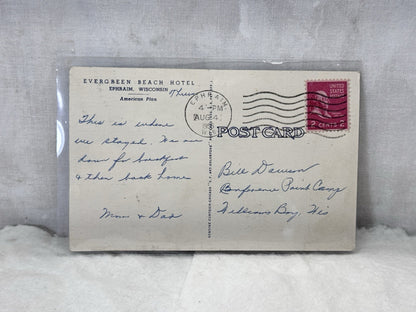 EVERGREEN BEACH HOTEL
EPHRAIM, WISCONSIN
American Plan
Thurs
This is where
we stayed. We are
down for breakfast
& then back home
Mom & Dad
EPHRAIM
4 - PM
AUG 4
WIS
UNITED STATES POSTAGE
2 CENTS 2
POST CARD
Bill Dawson
Conference Point Camp
Williams Bay, Wis